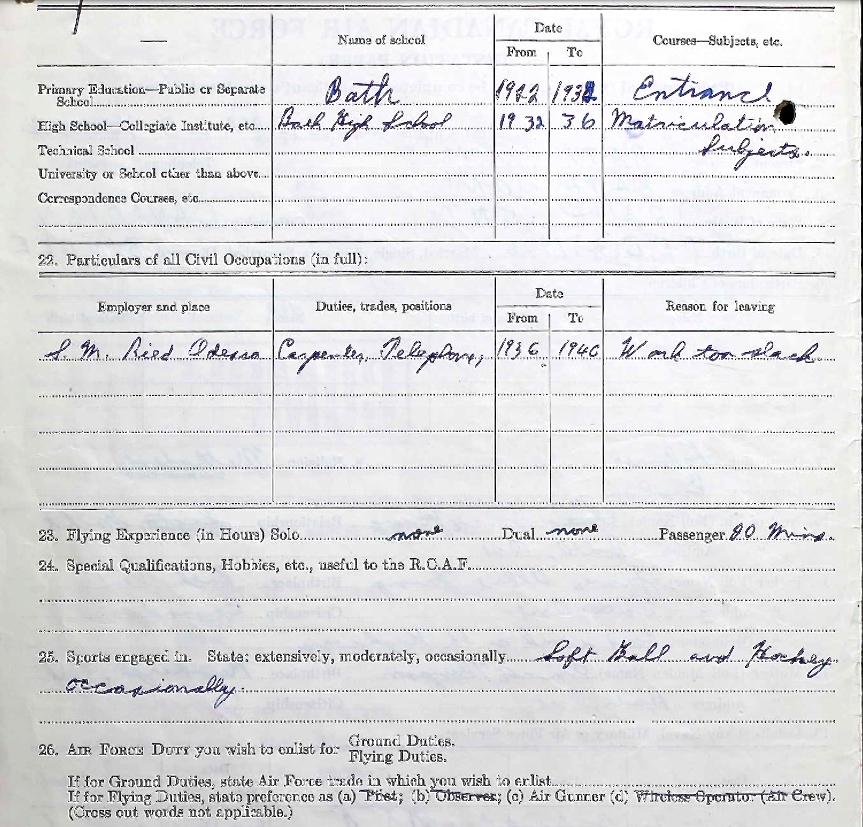 Name of school
Date
From To
Courses—Subjects, etc.
Primary Education—Public or Separate School Bath 1922 1932 Entrance
High School—Collegiate Institute, etc. Bath High School 1932 36 Matriculation
Technical School Subjects.
University or School other than above
Correspondence Courses, etc.
22. Particulars of all Civil Occupations (in full):
Employer and place Duties, trades, positions Date Reason for leaving
From To
S. M. Ried Odessa Carpenter, Telephone, 1936 1940 Work too slack
23. Flying Experience (in Hours) Solo none Dual none Passenger Mins.
24. Special Qualifications, Hobbies, etc., useful to the R.C.A.F.
25. Sports engaged in. State: extensively, moderately, occasionally Soft Ball and Hockey
occasionally.
26. AIR FORCE DUTY you wish to enlist for Ground Duties.
Flying Duties.
If for Ground Duties, state Air Force trade in which you wish to enlist
If for Flying Duties, state preference as (a) Pilot; (b) Observer; (c) Air Gunner (d) Wireless Operator (Air Crew).
(Cross out words not applicable.)